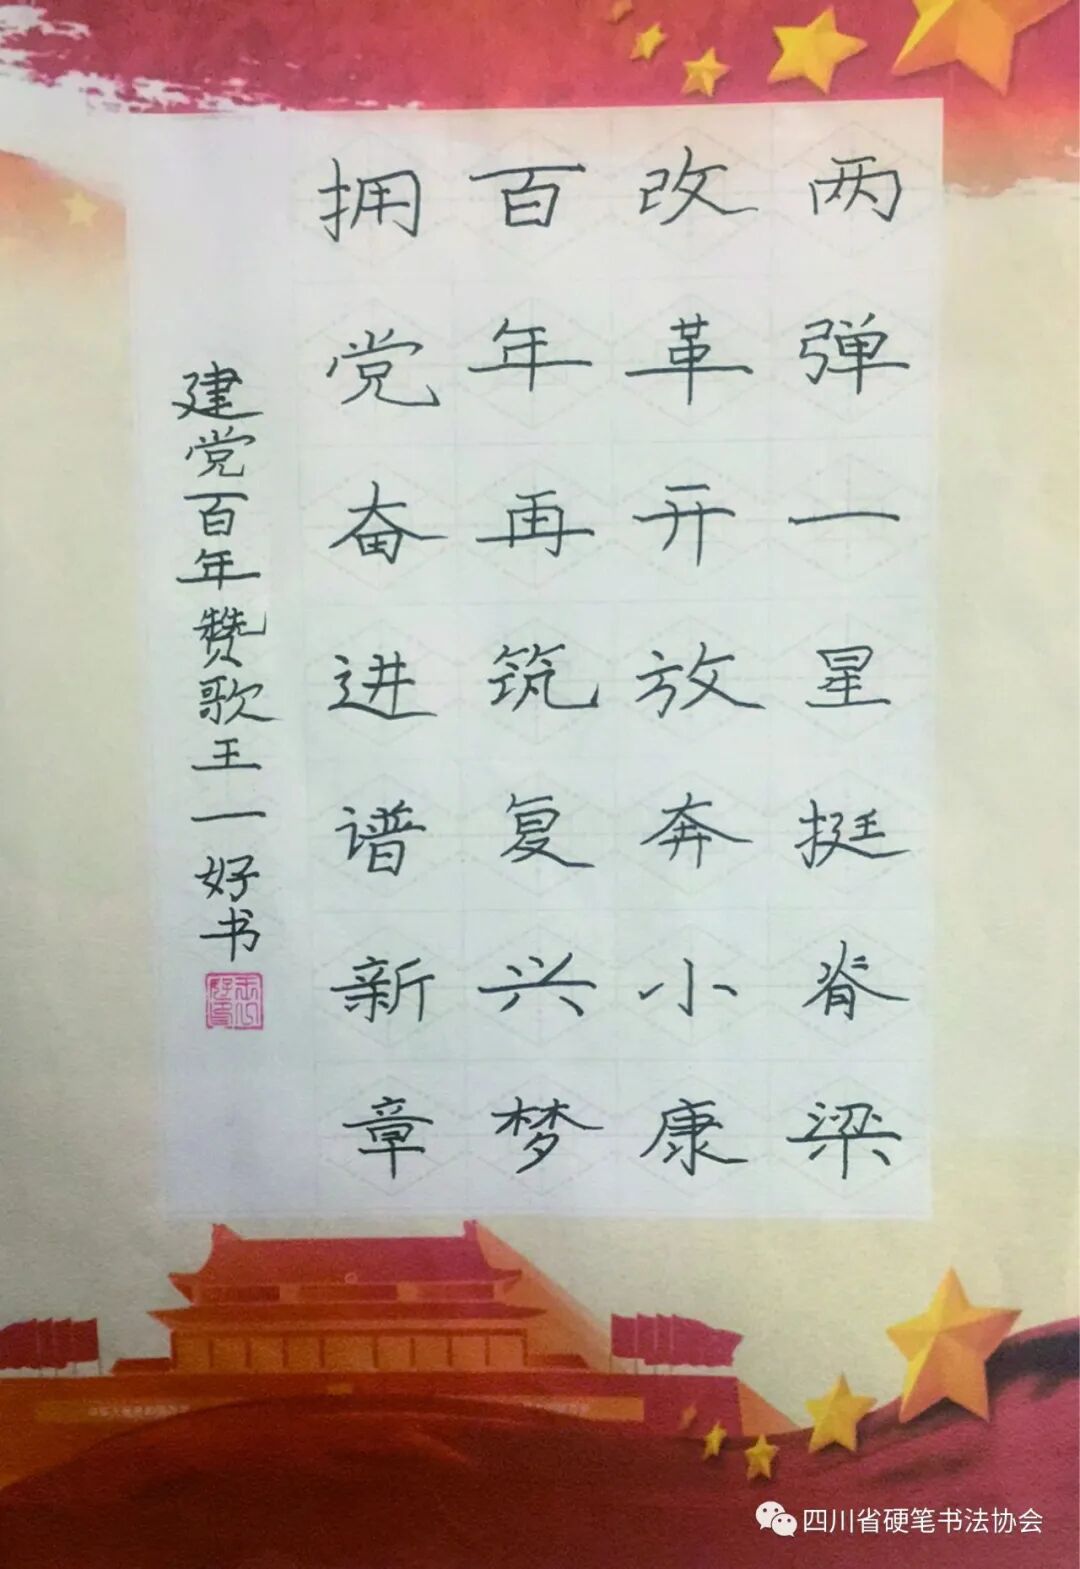 两弹一星挺脊梁
改革开放奔小康
百年再筑复兴梦
拥党奋进谱新章
建党百年赞歌王一好书
四川省硬笔书法协会